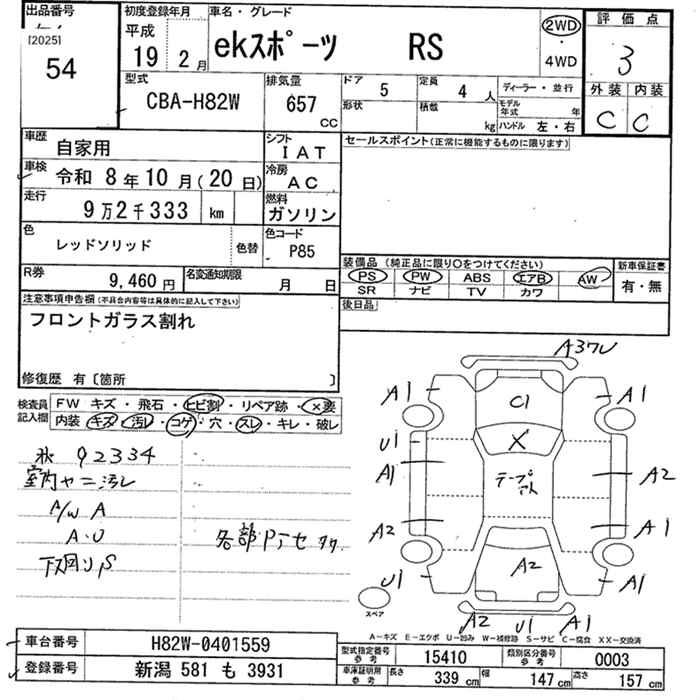 出品番号
[2025]
54
初度登録年月
平成
19 2月
車名・グレード
ekスポーツ RS
2WD
・
4WD
評価点
3
外装 内装
C C
型式
CBA-H82W
排気量
657
CC
ドア
5
定員
4人
形状
積載
kg
ディーラー・並行
モデル年式 年
ハンドル 左・右
車歴
自家用
シフト
IAT
車検
令和 8年10月(20日)
冷房
AC
走行
9万2千333 km
燃料
ガソリン
色
レッドソリッド
色替
色コード
P85
R券
9,460円
名変通知期限
月 日
セールスポイント(正常に機能するものに限ります)
装備品(純正品に限り○をつけてください)
PS PW ABS エアB AW
SR ナビ TV カワ
新車保証書
有・無
後日品
注意事項申告欄(不具合内容等は具体的に記入して下さい)
フロントガラス割れ
修復歴 有〔箇所 〕
検査員記入欄
FW キズ・飛石・ヒビ割・リペア跡・×要
内装 キズ・汚レ・コゲ・穴・スレ・キレ・破レ
状 92334
室内ヤニ汚レ
A/W A
A・U
下回りS
各部Pアセタク
A3ワレ
A1
A1
C1
U1
X
A1
テープ穴
A2
A2
A1
U1
A2
A1
スペア
A2 U1 A1
A－キズ E－エクボ U－凹み W－補修跡 S－サビ C－腐食 XX－交換済
車台番号
H82W-0401559
登録番号
新潟 581 も 3931
型式指定番号
参考
15410
類別区分番号
参考
0003
車庫証明用
参考
長さ
339 cm
幅
147 cm
高さ
157 cm